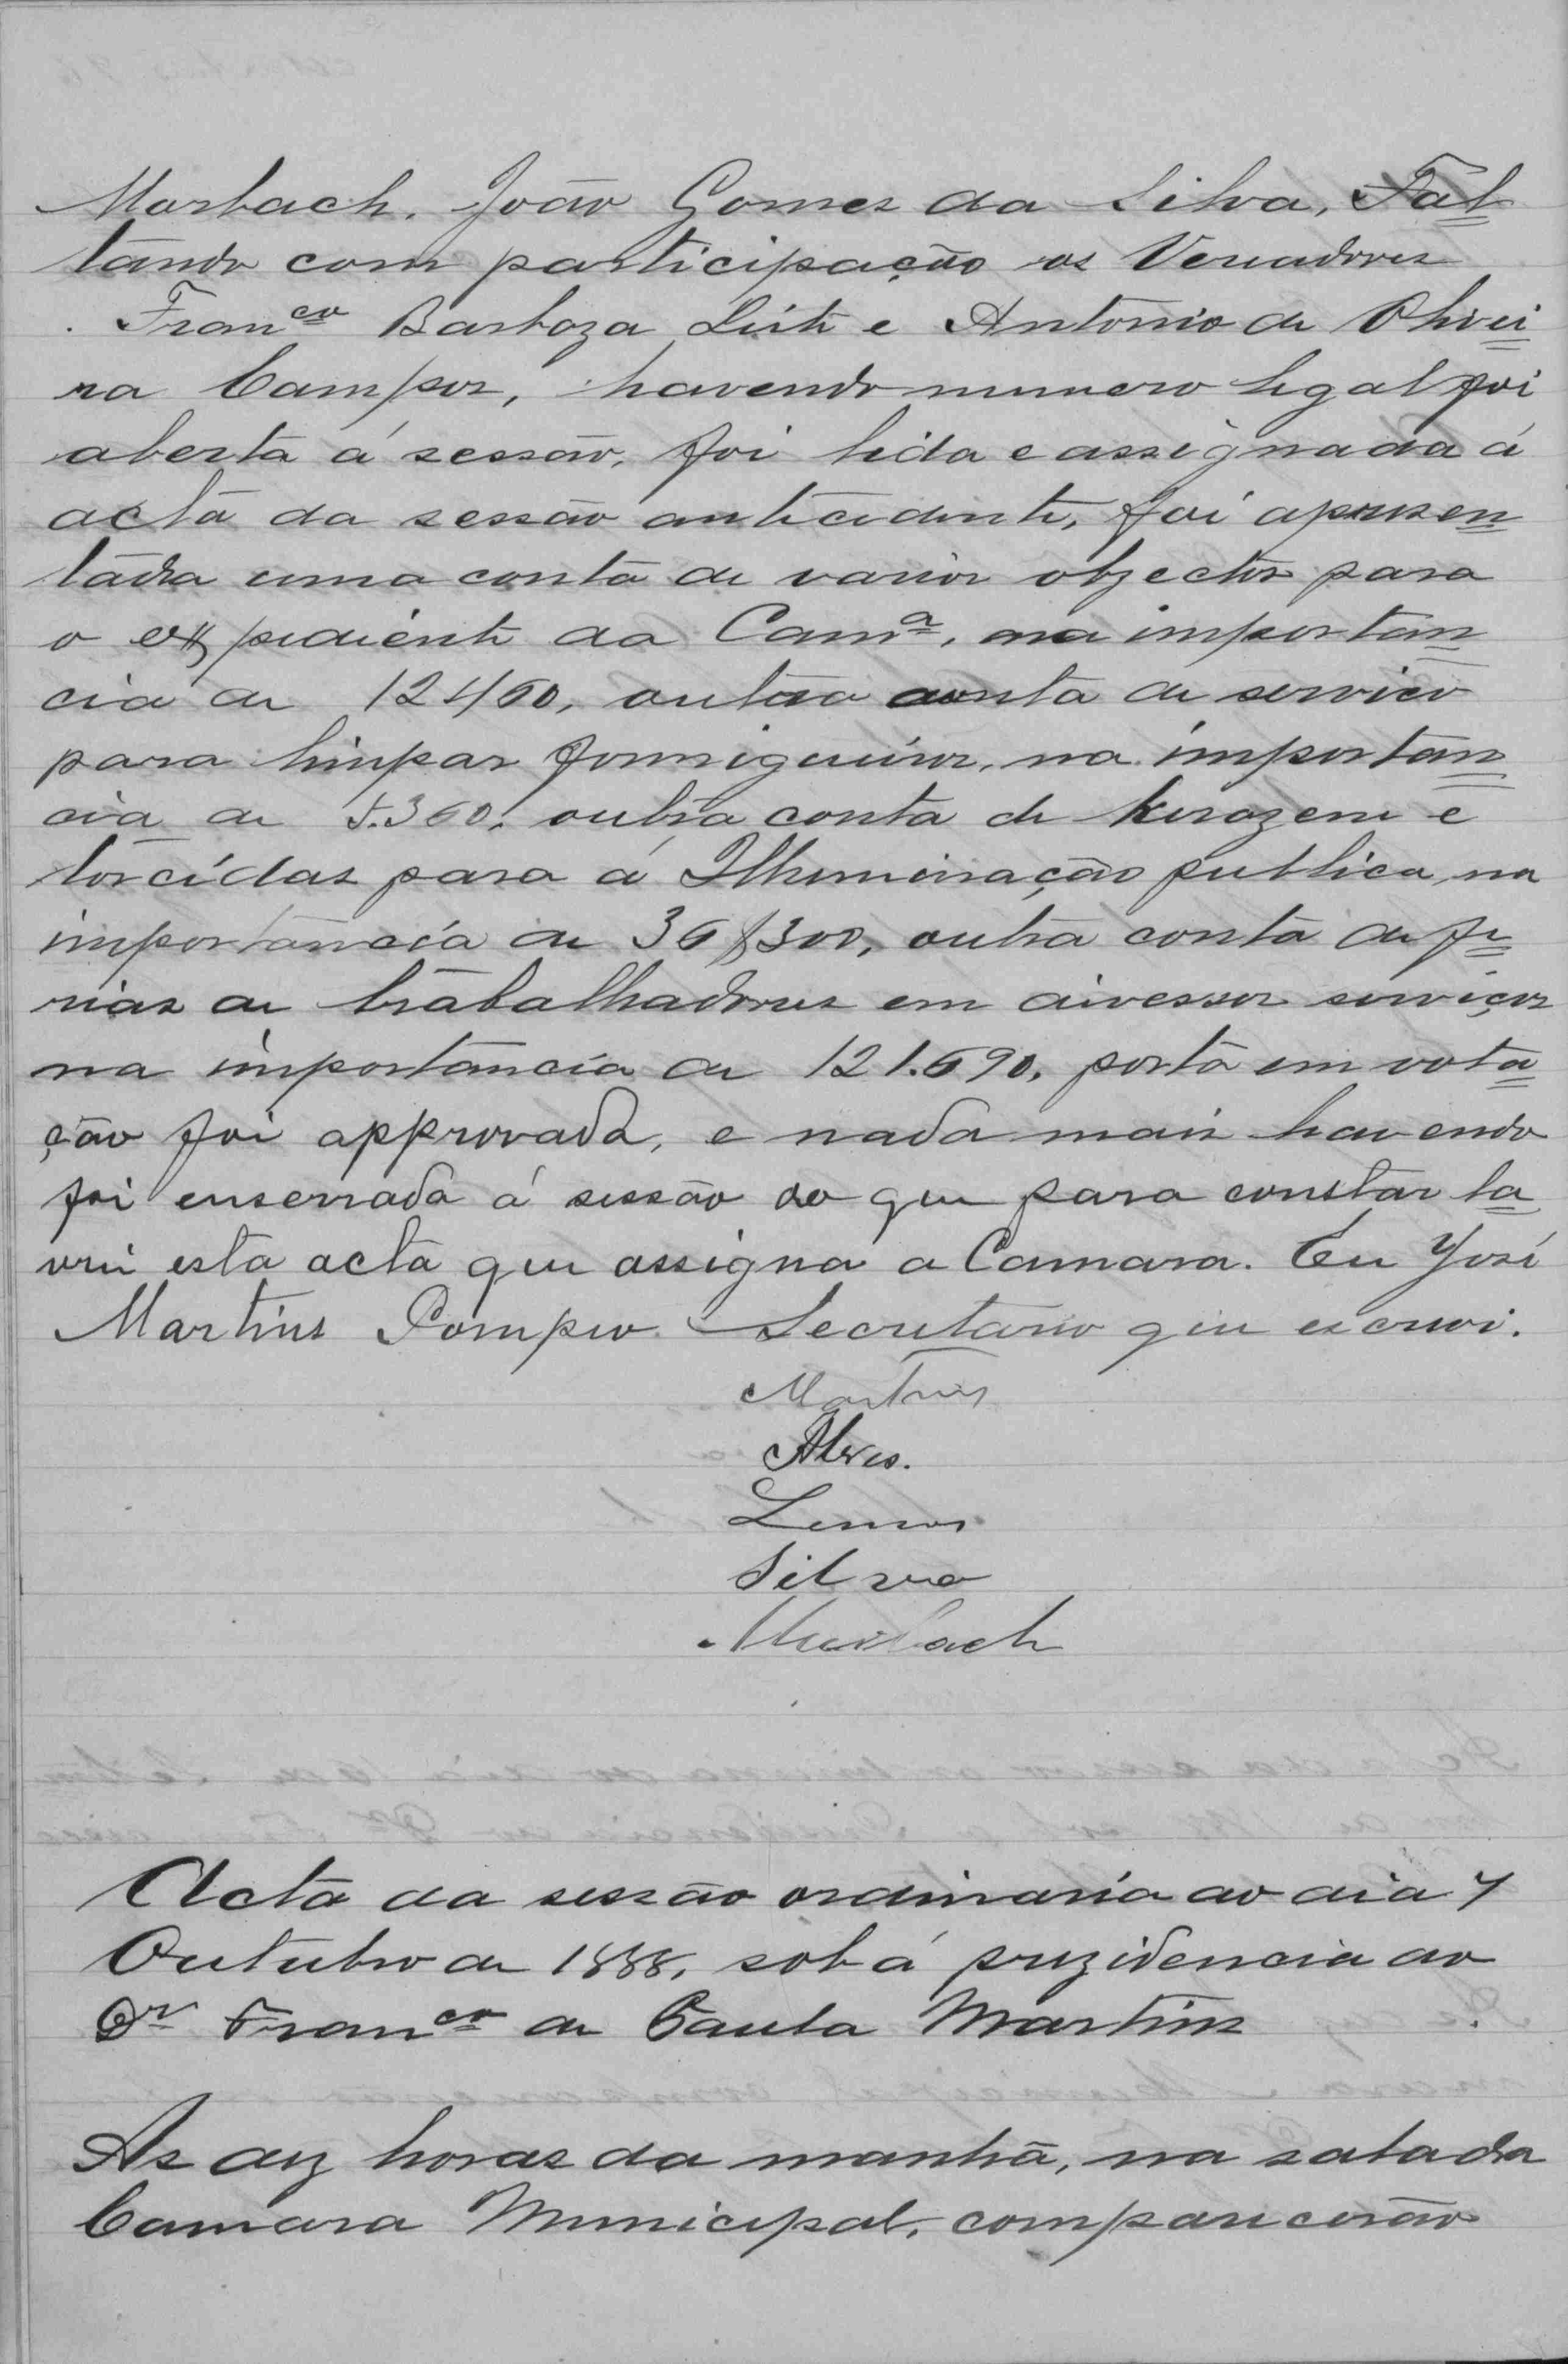 Marbach. João Gomes da Silva, Fal
tando com participação os Vereadores
Fran^co Barboza Leite e Antonio de Olivei
ra Campos, havendo numero legal foi
aberta á sessão, foi lida e assignada á
acta da sessão antecedente, foi apresen
tada uma conta de varios objectos para
o expediente da Cam^a, na importan
cia de 12460, outra conta de serviço
para limpar formigueiros, na importan
cia de 5.360, outra conta de kerozene e
torcidas para á Illuminação publica, na
importancia de 36$300, outra conta de fe
rias de trabalhadores em diversos serviços
na importancia de 121.690, posta em vota
ção foi approvada, e nada mais havendo
foi enserrada á sessão do que para constar la
vrei esta acta que assigna a Camara. Eu José
Martins Pompeo Secretario que escrevi.
Martins
Alves.
Lemos
Silva
Marbach
Acta da sessão ordinaria do dia 7
Outubro de 1888, sob á prezidencia do
Dr Fran^co de Paula Martins
As dez horas da manhã, na sala da
Camara Municipal, comparecerão